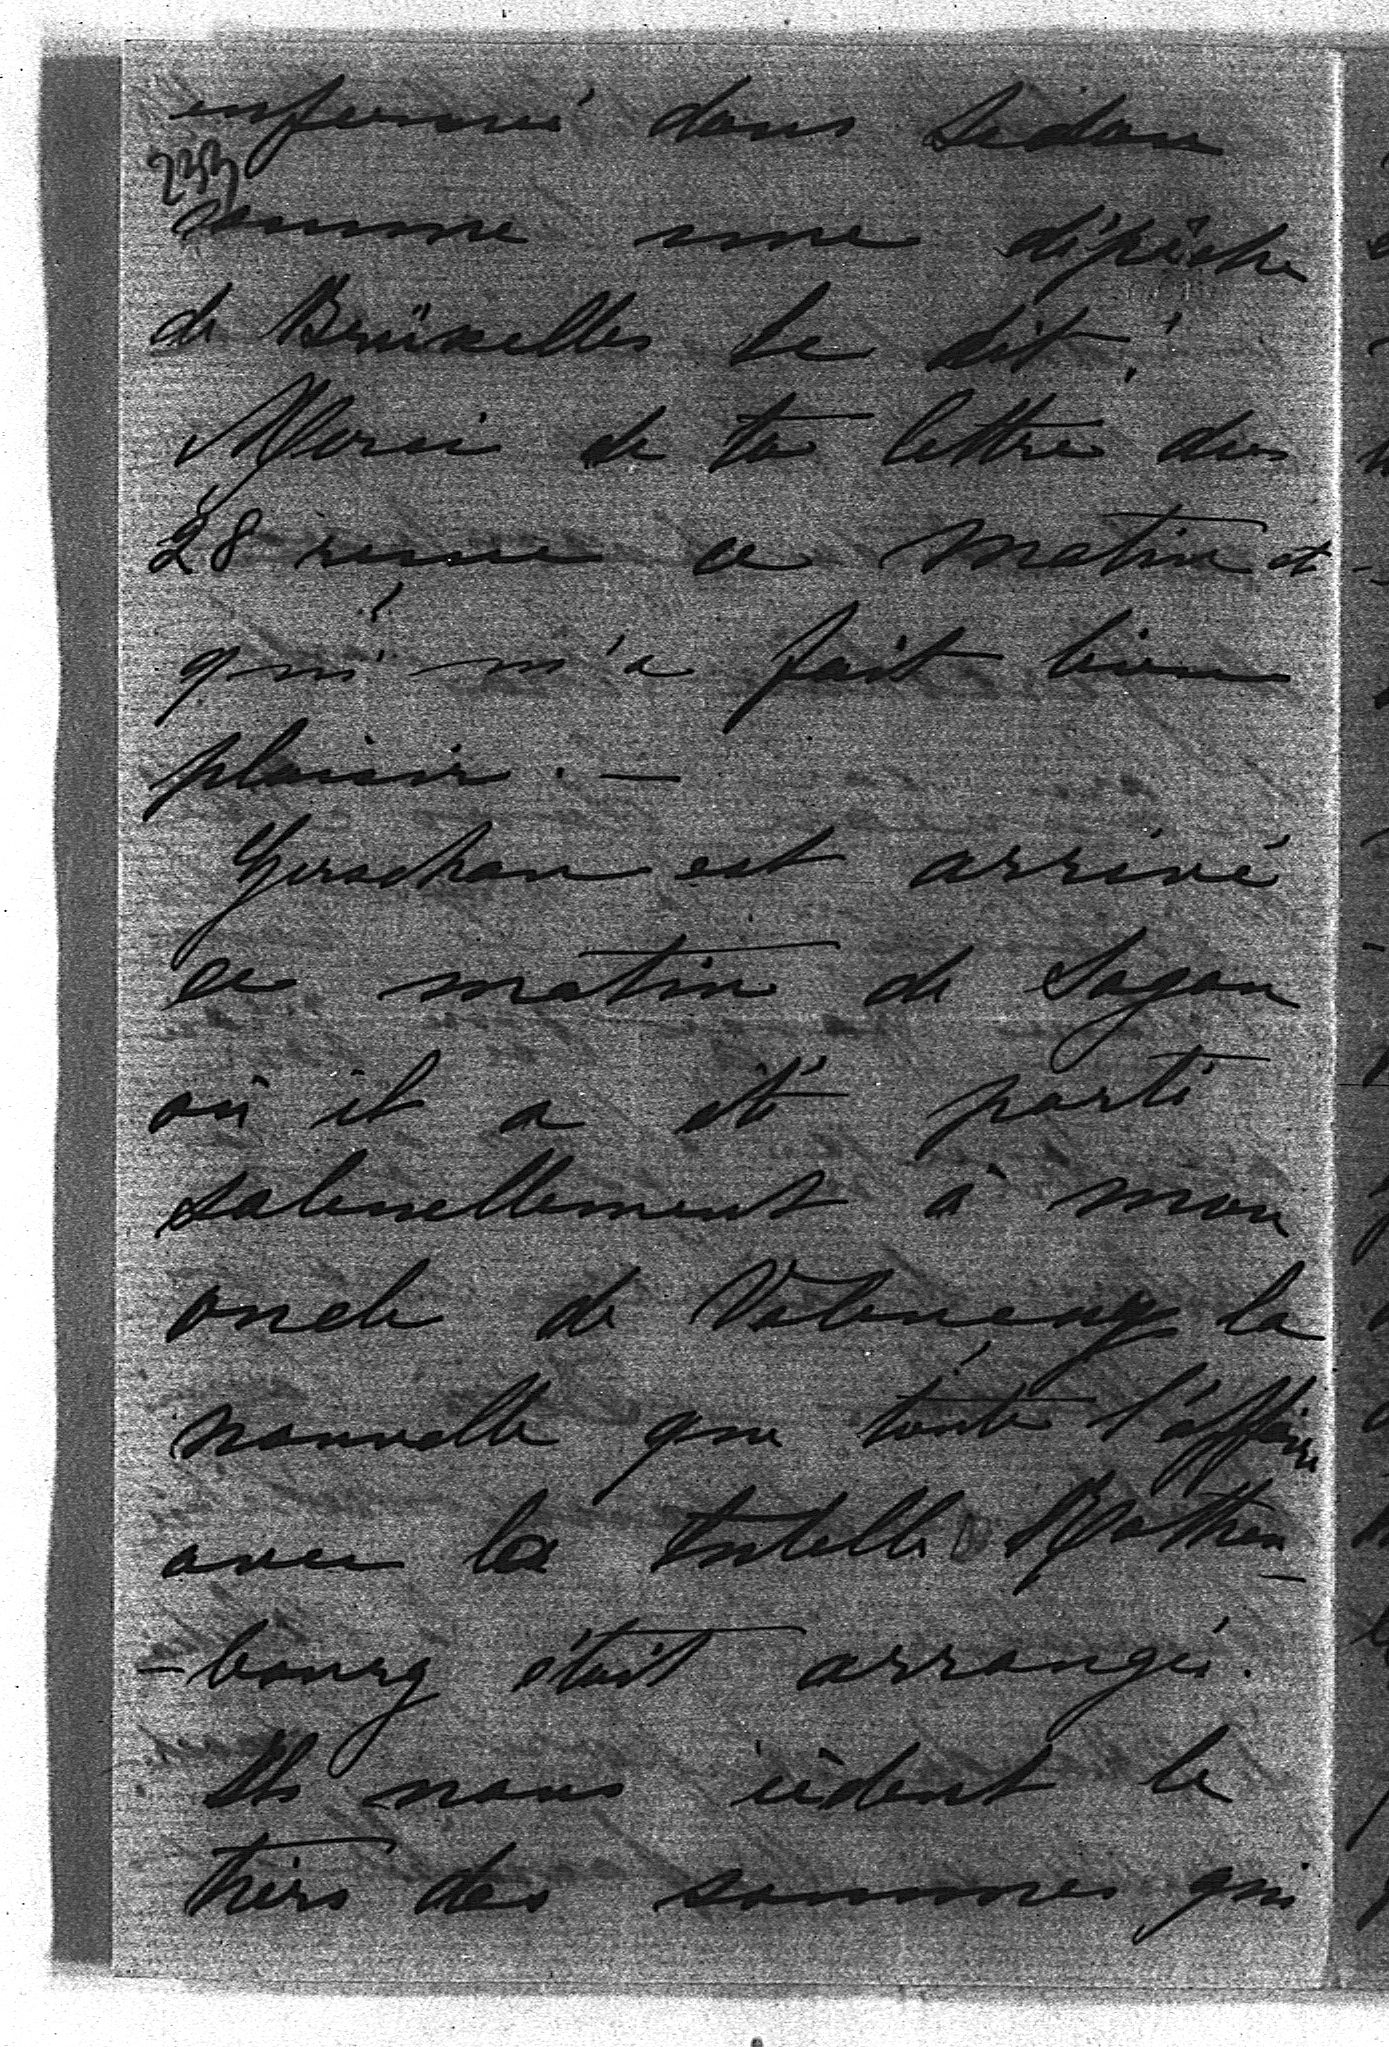 enfermé dans Sedan
233
comme une dépêche
de Brüxelles le dit!
Merci de ta lettre du
28 reçue ce matin et
qui m'a fait bien
plaisir. —
est arrivé
ce matin de Sagan
où il a été parti
à mon
oncle de Valençay la
nouvelle que toute l'affaire
avec la tutelle Rothen-
-bourg était arrangée.
Ils nous cèdent le
tiers des sommes qui